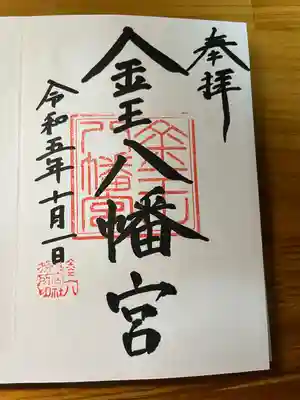 奉拝
金王八幡宮
令和五年十月一日
金王八幡宮